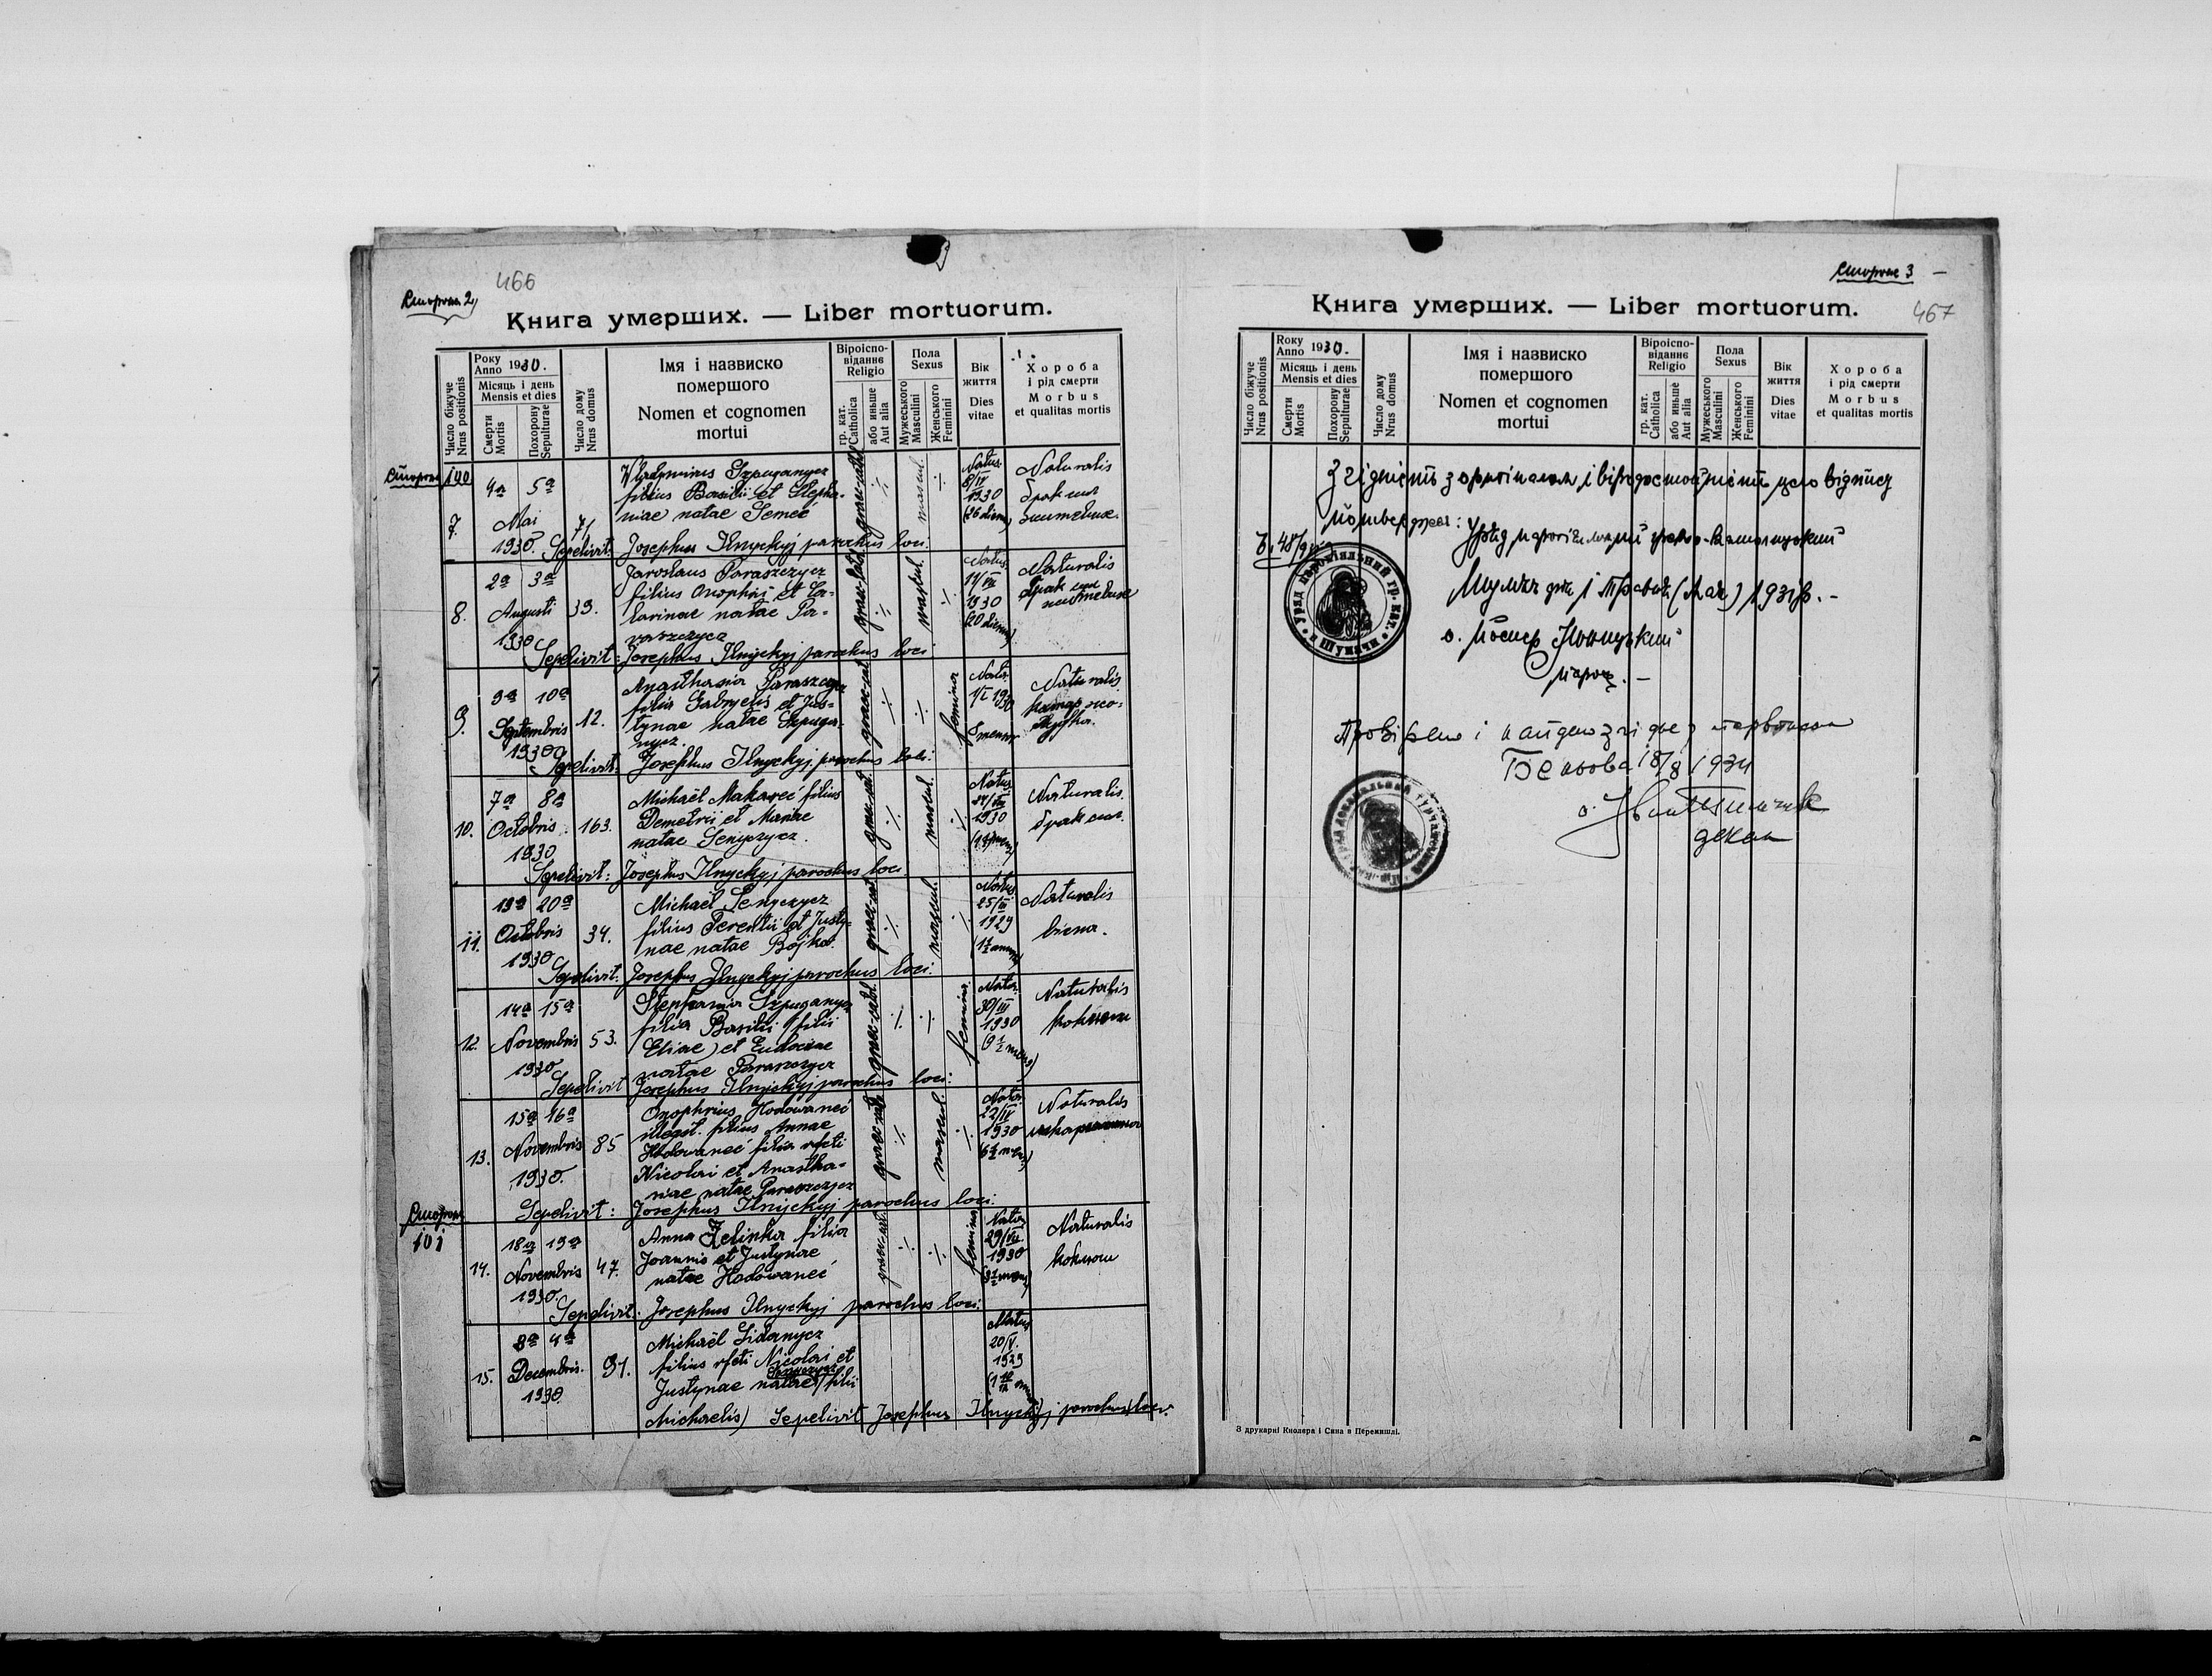 466
Сторона 2
Книга умерших. — Liber mortuorum.
Число біжуче
Nrus positionis
Року
Anno 1930.
Місяць і день
Mensis et dies
Смерти
Mortis
Похорону
Sepulturae
Число дому
Nrus domus
Імя і назвиско
помершого
Nomen et cognomen
mortui
Віроіспо-
віданнє
Religio
гр. кат.
Catholica
або иньше
Aut alia
Пола
Sexus
Мужеського
Masculini
Женського
Feminini
Вік
життя
Dies
vitae
Хороба
і рід смерти
Morbus
et qualitas mortis
Сторона 100
7. 4a 5a Mai 1930. 71
Wladymirus Szpuganycz
filius Basilii et Stepha-
niae natae Semeć
graec-cath. mascul.
Natus 1930 (26 dierum)
Naturalis
брак сил
Sepelivit: Josephus Ilnyckyj parochus loci.
8. 2a 3a Augusti 1930 39.
Jaroslaus Paraszczycz
filius Onophrii et Ca-
tarinae natae Pa-
raszczycz
graec-cath. mascul.
Natus 1930 (20 dierum)
Naturalis
брак сил
Sepelivit: Josephus Ilnyckyj parochus loci
9. 9a 10a Septembris 1930 12.
Anasthasia Paraszczycz
filia Gabryelis et Jus-
tynae natae Szpuga-
nycz.
graec-cat. femina
Nata 1/I 1930 8 mensium
Naturalis
катар жо-
лудка.
Sepelivit: Josephus Ilnyckyj parochus loci.
10. 7a 8a Octobris 1930 163.
Michaël Makareć filius
Demetrii et Mariae
natae Senyczycz.
graec-cat. mascul.
Natus 1930
Naturalis.
брак сил.
Sepelivit: Josephus Ilnyckyj parochus loci
11. 19a 20a Octobris 1930 34.
Michaël Senyczycz
filius Terentii et Justy-
nae natae Bojko.
graec-cat. mascul.
Natus 1929
Naturalis
віспа.
Sepelivit: Josephus Ilnyckyj parochus loci.
12. 14a 15a Novembris 1930 53.
Stephania Szpuganycz
filia Basilii (filii
Eliae) et Eudociae
natae Paraszczycz
graec-cath. femina
Nata 30/III 1930
Naturalis
коклюш
Sepelivit Josephus Ilnyckyj parochus loci.
13. 15a 16a Novembris 1930. 85
Onophrius Hodowaneć
illegit. filius Annae
Hodowaneć filia rfcti
Nicolai et Anastha-
siae natae Paraszczycz
graec-cath. mascul.
22/IV 1930
Naturalis
Sepelivit: Josephus Ilnyckyj parochus loci.
Сторона 101
14. 18a 19a Novembris 1930. 47.
Anna Zelinka filia
Joannis et Justynae
natae Hodowaneć
graec-cat. femina
Nata 29/VII 1930
Naturalis
коклюш
Sepelivit: Josephus Ilnyckyj parochus loci.
15. 3a 4a Decembris. 1930. 91.
Michaël Sidanycz
filius rfcti Nicolai et
Justynae natae (filii
Michaelis) Sepelivit Josephus Ilnyckyj parochus loci.
Natus 20/V. 1929
Сторона 3
467
Книга умерших. — Liber mortuorum.
Число біжуче
Nrus positionis
Року
Anno 1930.
Місяць і день
Mensis et dies
Смерти
Mortis
Похорону
Sepulturae
Число дому
Nrus domus
Імя і назвиско
помершого
Nomen et cognomen
mortui
Віроіспо-
віданнє
Religio
гр. кат.
Catholica
або иньше
Aut alia
Пола
Sexus
Мужеського
Masculini
Женського
Feminini
Вік
життя
Dies
vitae
Хороба
і рід смерти
Morbus
et qualitas mortis
Згідність з оригіналом і вірогідність цего відпису
потверджає: Уряд парохіяльний греко-католицький
Шумяч дня 1 Травня (Мая) 1931 р. -
о. Йосиф Ільницький
парох. -
Провірено і найдено згідне з первописом
18/8 1931
декан
З друкарні Кнолера і Сина в Перемишлі.